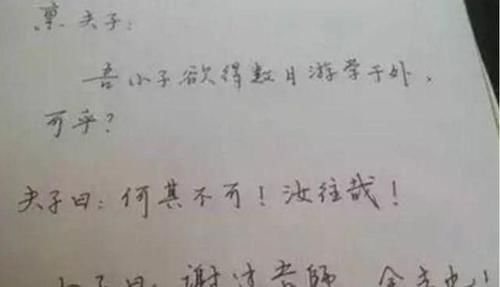 禀夫子：
吾小子欲得数日游学于外，
可乎？
夫子曰：何其不可！汝往哉！
小子曰：谢过老师